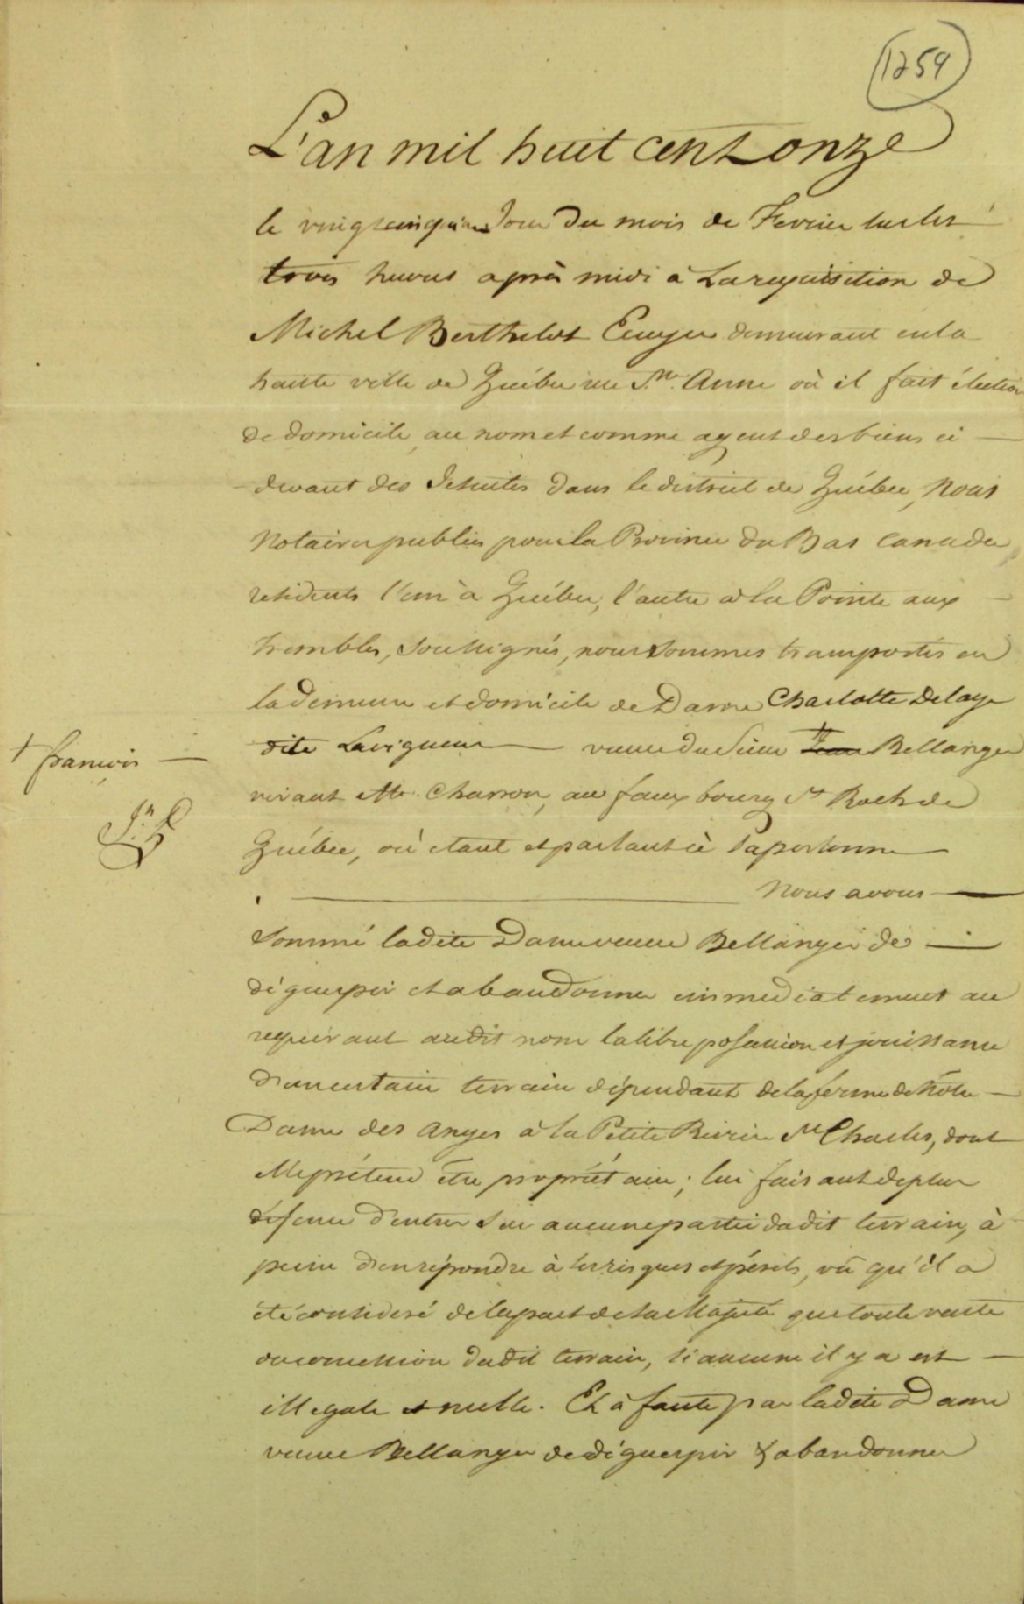 1259
L'an mil huit cent onze
le vingt cinquieme Jour du mois de Fevrier sur les
trois heures après midi à La requisition de
Michel Berthelot Ecuyer demeurant en la
haute ville de Québec rue Ste. Anne où il fait élection
de domicile, au nom et comme agent des biens ci
devant des Jesuites dans le district de Québec, Nous
Notaires publics pour la Province du Bas Canada,
residents l'un à Québec, l'autre à la Pointe aux
trembles, soussignés, nous sommes transportés en
la demeure et domicile de Dame Charlotte Delage
dite Lavigueur veuve du Sieur Bellanger
† francois
vivant Mtre Charron, au fauxbourg St Roch de
Québec, où etant et parlant à sa personne
Nous avons
Sommé ladite Dame veuve Bellanger de
déguerpir et abandonner immediatement au
requérant audit nom la libre possession et jouissance
d'un certain terrain dépendant de la ferme de Nôtre
Dame des Anges à la Petite Rivière St Charles, dont
Elle prétend être propriétaire; lui faisant de plus
défense d'entrer sur aucune partie dudit terrain, à
peine d'en répondre à ses risques et périls, vû qu'il a
été considéré de la part de sa Majesté que toute vente
ou concession dudit terrain, si aucune il y a est
illegale et nulle. Et à faute par ladite Dame
veuve Bellanger de déguerpir & abandonner